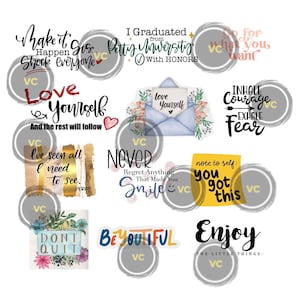 Make it
Happen
Shock everyone
I Graduated
from
University
With HONORS
Go for
what you
want
Love
Yourself
And the rest will follow
Love
Yourself
INHALE
Courage
EXHALE
Fear
I've seen all
I need
to see
NEVER
Regret Anything
That Made You
Smile
note to self:
you
got
this
DON'T
QUIT
BEYOUTIFUL
Enjoy
THE LITTLE THINGS
VC
VC
VC
VC
VC
VC
VC
VC
VC
VC
VC
VC